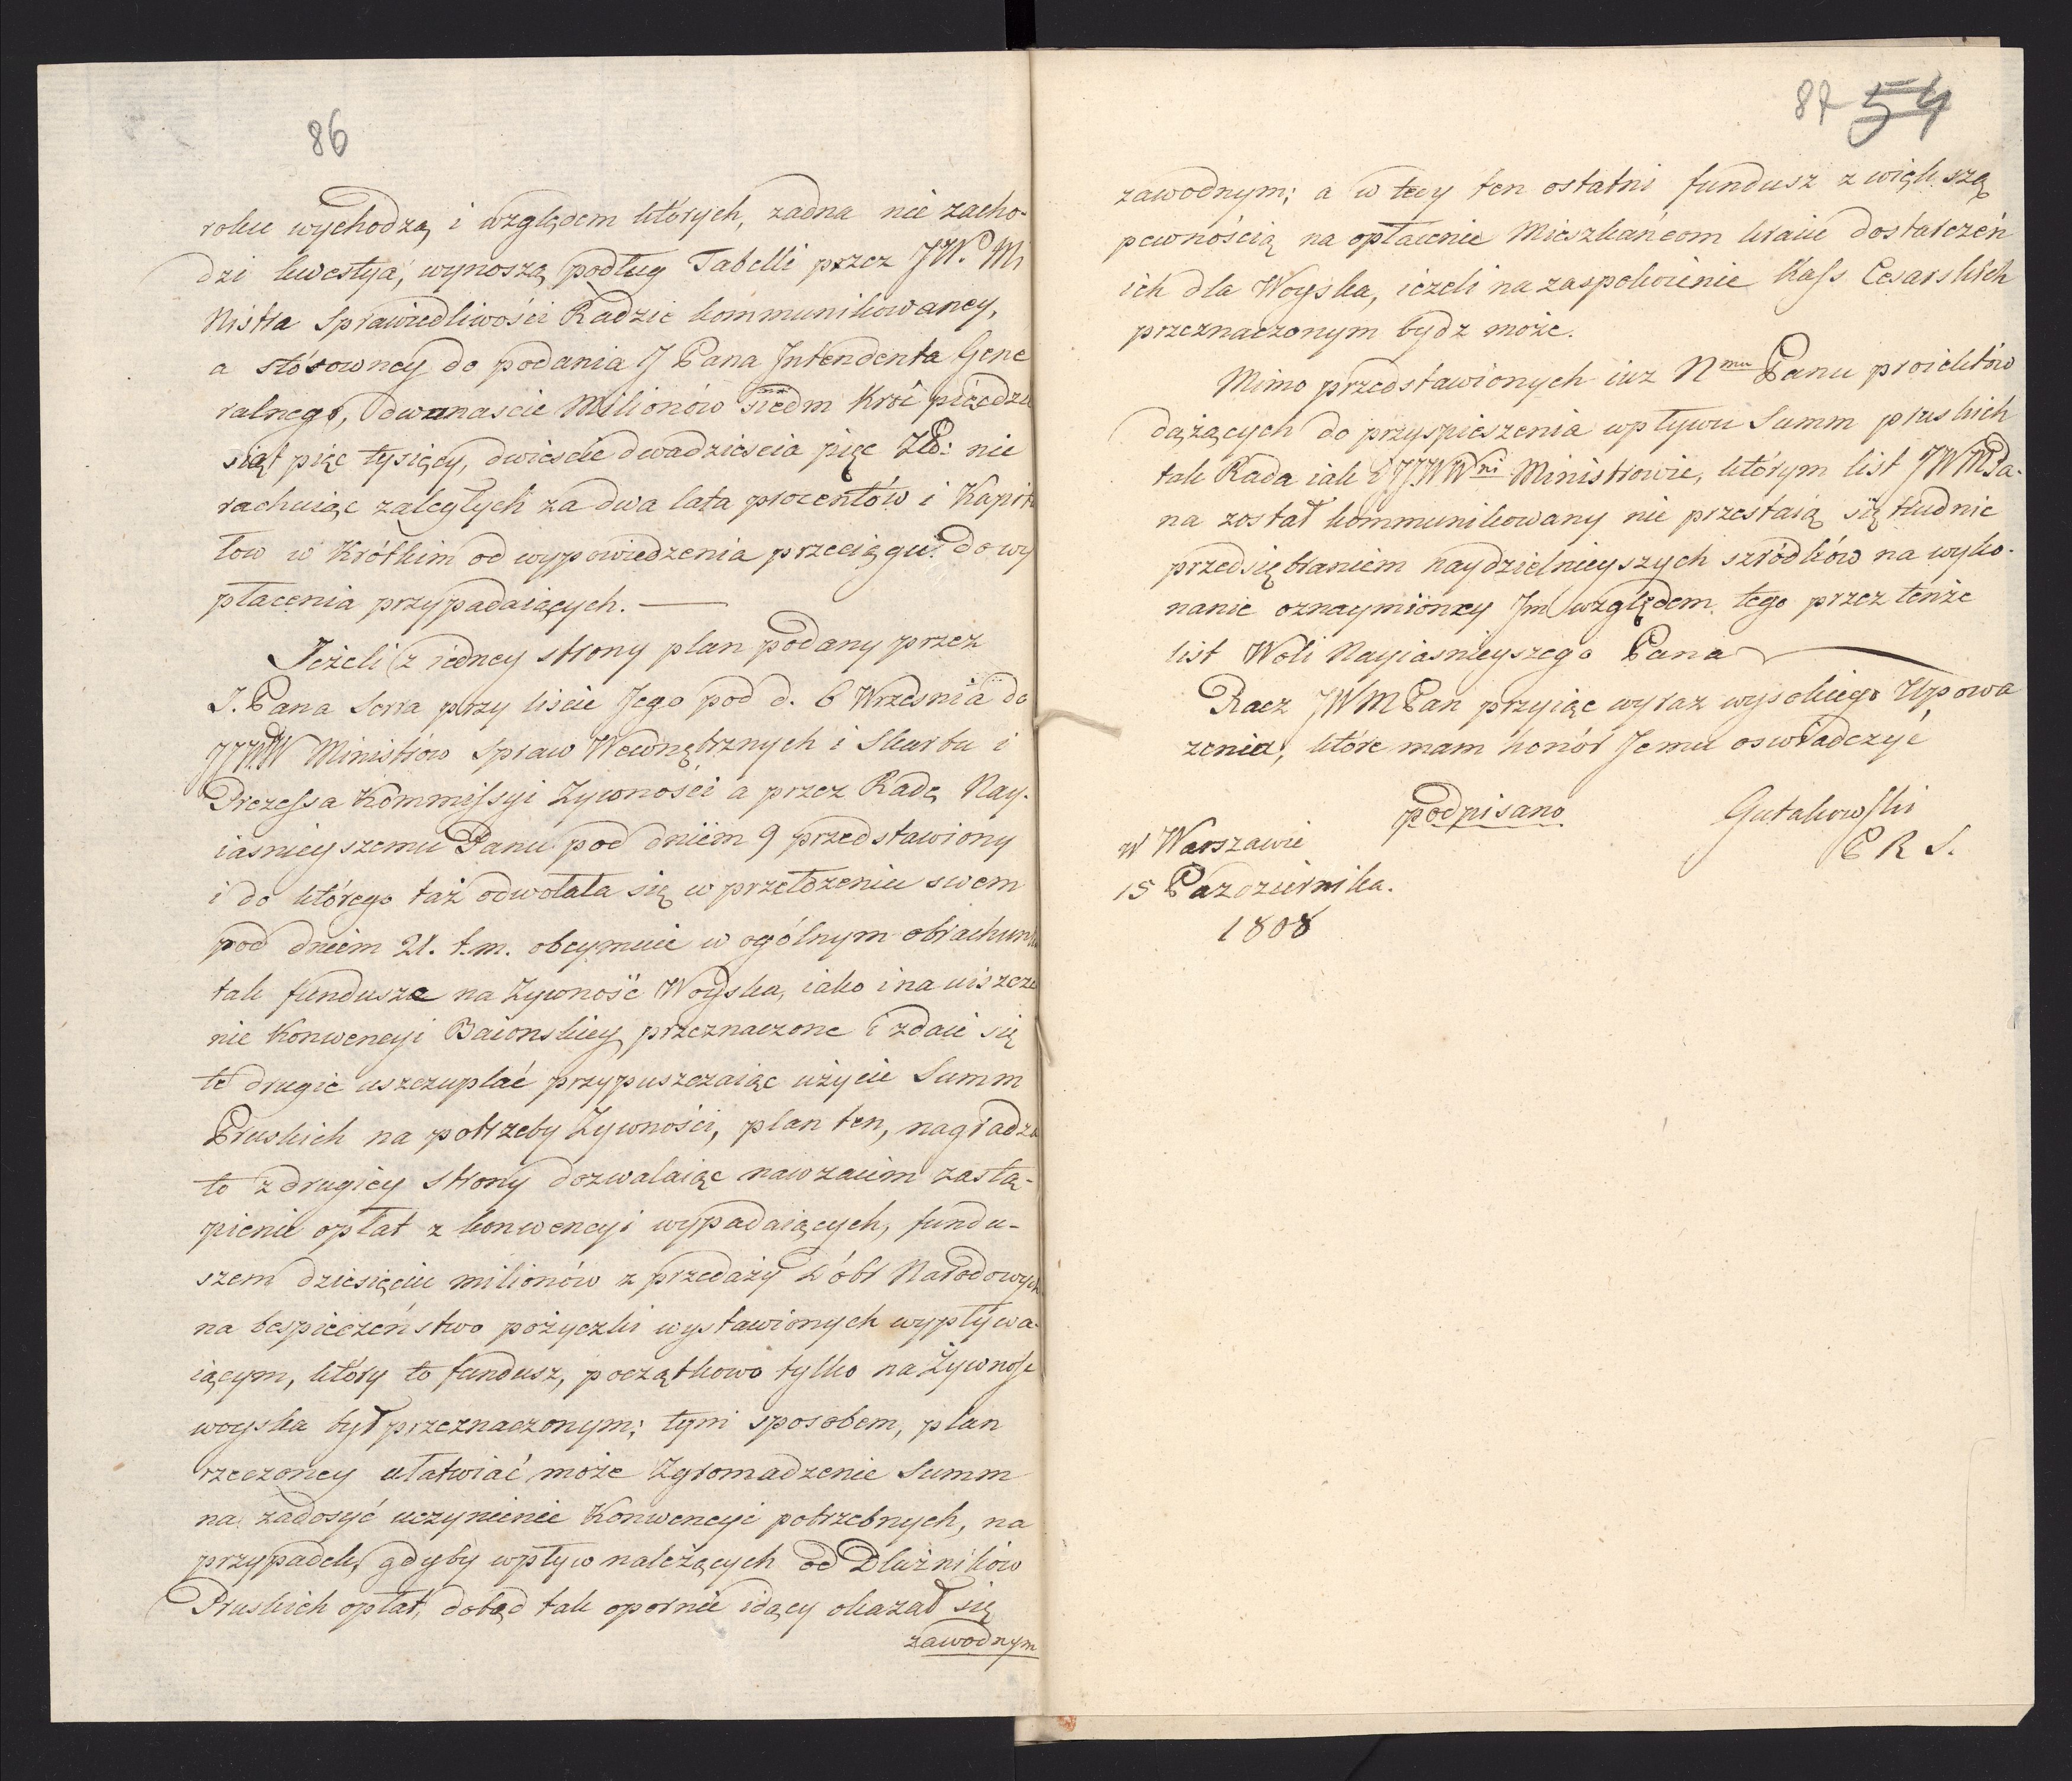 86
roku wychodzą, i względem których, żadna nie zacho-
dzi kwestya, wynoszą podług Tabelli przez JW. Mi
nistra Sprawiedliwości Radzie kommunikowaney,
a stósowney do podania J Pana Intendenta Gene
ralnego, dwanaście Milionów siedm Kroć pięćdzie
siąt pięć tysięcy, dwieście dwadzieścia pięć Zło: nie
rachuiąc zaległych za dwa lata procentów i Kapita
łow w Krótkim od wypowiedzenia przeciągu do wy
płacenia przypadaiących. —
Jeżeli z iedney strony plan podany przez
J. Pana Serra przy liście Jego pod d. 6 Września do
JJWW Ministrów Spraw Wewnętrznych i Skarbu i
Prezessa Kommissyi Zywności a przez Radę Nay-
iaśnieyszemu Panu pod dniem 9 przedstawiony
i do którego taż odwołała się w przełożeniu swem
pod dniem 21. t.m. obeymuie w ogólnym obrachunku
tak fundusze na Zywność Woyska, iako i na uiszcze
nie Konwencyi Baionskiey przeznaczone i zdaie się
te drugie uszczuplać przypuszczaiąc użycie Summ
Pruskich na potrzeby Zywności, plan ten, nagradza
to z drugiey strony dozwalaiąc nawzaiem zastą-
pienie opłat z konwencyi wypadaiących, fundu-
szem dziesięciu milionów z przedaży Dóbr Narodowych
na bespieczeństwo pożyczki wystawionych wypływa-
iącym, który to fundusz, początkowo tylko na Żywność
woyska był przeznaczonym; tym sposobem, plan
rzeczoney ułatwiać może Zgromadzenie Summ
na zadosyć uczynienie Konwencyi potrzebnych, na
przypadek, gdyby wpływ należących od Dłużników
Pruskich opłat, dotąd tak opornie idący okazał się
zawodnym
87 54
zawodnym; a w tedy ten ostatni fundusz z większą
pewnością na opłacenie Mieszkańcom kraiu dostarczeń
ich dla Woyska, ieżeli na zaspokoienie Kass Cesarskich
przeznaczonym bydz może.
Mimo przedstawionych iuż Nmu Panu proiektów
dążących do przyspieszenia wpływu Summ pruskich
tak Rada iak i JJWWni Ministrowie, którym list JWMPa-
na został kommunikowany nie przestaią się trudnić
przedsiębraniem naydzielnieyszych szródków na wyko-
nanie oznaymioney Jm względem tego przez tenże
list Woli Nayiaśnieyszego Pana
Racz JWMPan przyiąć wyraz wysokiego Upowa
żenia, które mam honór Jemu oswiadczyć
podpisano Gutakowski
P R S.
w Warszawie
15 Pazdziernika.
1808